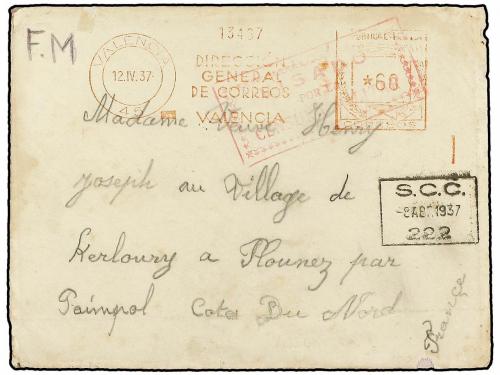 F.M
13487
VALENCIA
12.IV.37
DIRECCIÓN
GENERAL
DE CORREOS
VALENCIA
*60
Madame Veuve Henry
Joseph au Village de
Kerloury a Plounez par
Paimpol Cote Du Nord
France
S.C.C.
-8 ABR 1937
222